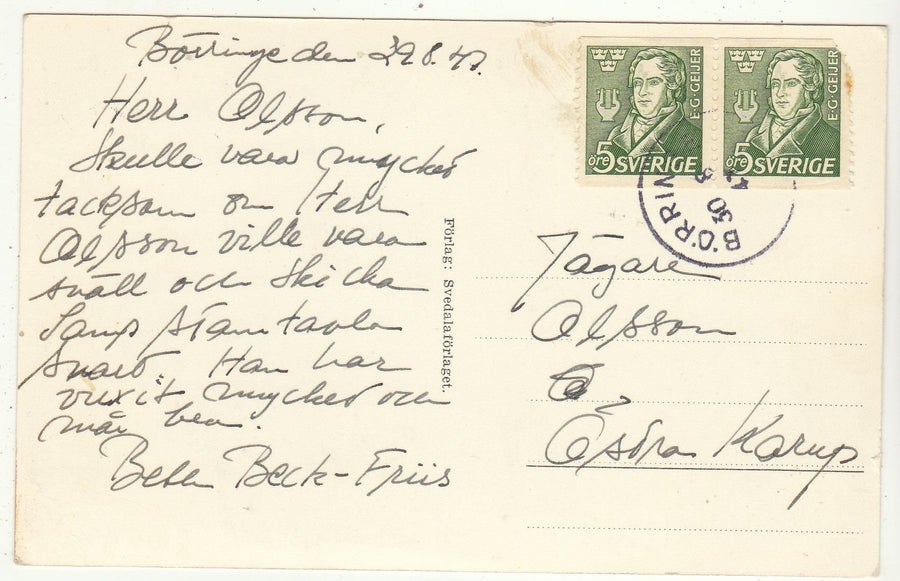 Börringe den 29.8.47.
Herr Olsson,
Skulle vara mycket
tacksam om Herr
Olsson ville vara
snäll och skicka
stamtavla
snart. Han har
vuxit mycket och
mår bra.
Beck-Friis
Förlag: Svedalaförlaget.
E·G·GEIJER
5 öre SVERIGE
E·G·GEIJER
5 öre SVERIGE
BÖRRIN
30 8
Jägare
Olsson
Östra Karup